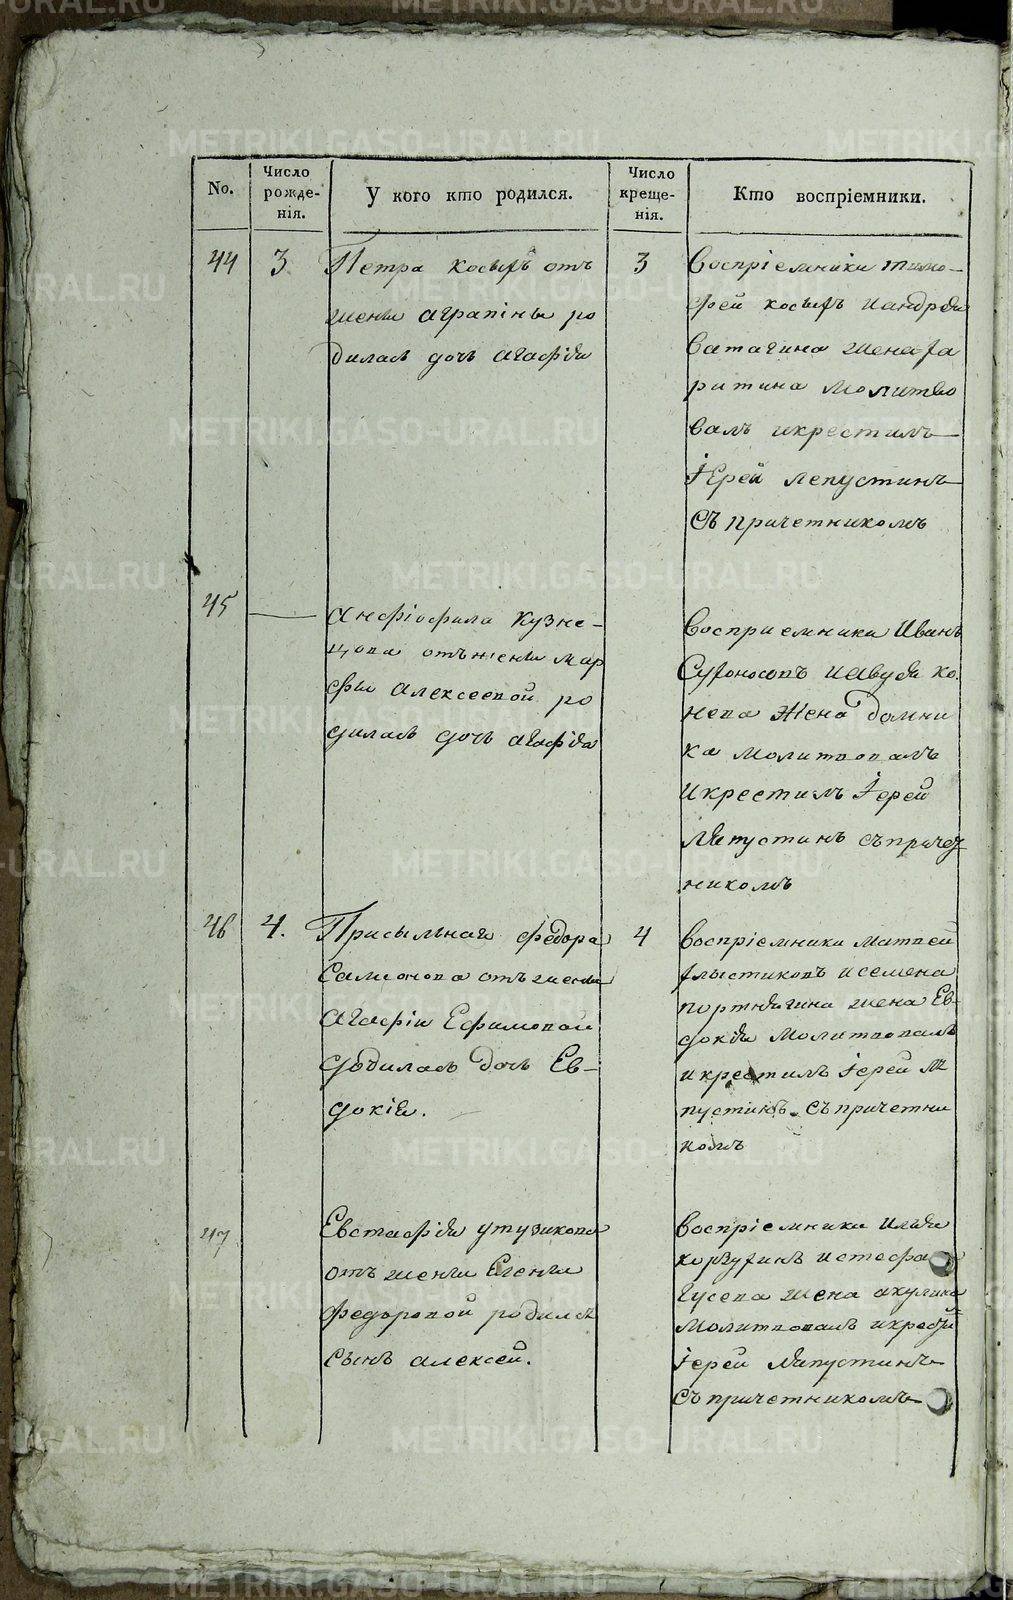 No.
Число рожде-нія.
У кого кто родился.
Число креще-нія.
Кто воспріемники.
44
3
Петра косыхъ отъ
жены аграпіны ро
дилась дочь агафія
3
Воспріемники тимо-
фей косыхъ иандрея
ватагина жена ха
ритина молитво
валъ икрестилъ
Іерей лепустинъ
съ причетникомъ
45
анфіофила кузне-
цова отъжены мар
фы алексеевой ро
дилась дочь агафія
Восприемники Иванъ
Сухоносовъ
жена домни
ка молитвовалъ
икрестилъ Іерей
Ляпустинъ съпричет
никомъ
46
4.
Присыльнаго федора
Самсонова отъ жены
агафіи Ефимовой
родилась дочь Ев-
докія.
4
воспріемники матвей
хлыстиковъ исемена
портнягина жена Ев-
докія молитвовалъ
икрестилъ Іерей ля
пустинъ съпричетни
комъ
47
Евстафія утузикова
отъ жены Елены
Федоровой родился
сынъ алексей.
воспріемники илья
истефа
гусева жена акулина
молитвовалъ икрести
Іерей ляпустинъ
съ причетникомъ
METRIKI.GASO-URAL.RU